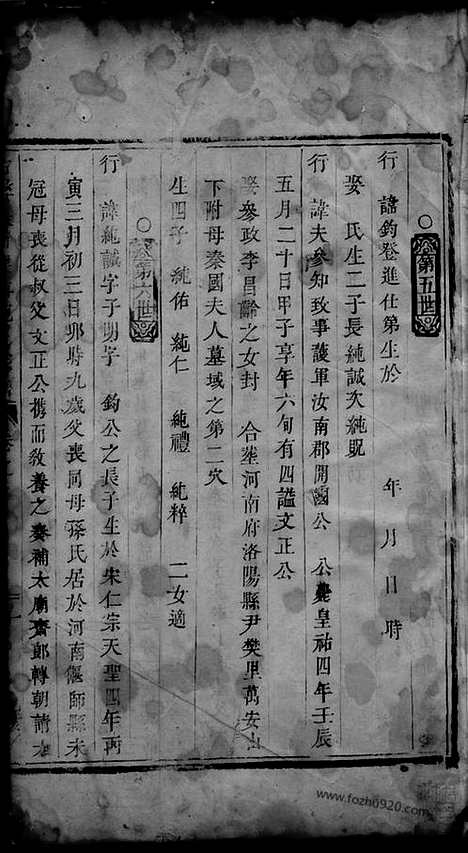 第五世
行　諱鈞登進仕第生於　　年　月　日　時
娶　氏生二子長純誠次純貺
行　諱夫參知致事護軍汝南郡開國公　公薨皇祐四年壬辰
五月二十日甲子享年六旬有四謚文正公
娶參政李昌齡之女封　合塟河南府洛陽縣尹樊里萬安山
下附母秦國夫人墓域之第二穴
生四子　純佑　純仁　純禮　純粹　二女適
第六世
行　諱純誠字子明子　鈞公之長子生於宋仁宗天聖四年丙
寅三月初三日卯時九歲父喪同母孫氏居於河南偃師縣未
冠母喪從叔父文正公携而敎養之奏補太廟齊郎轉朝請大
www.fozhu920.com